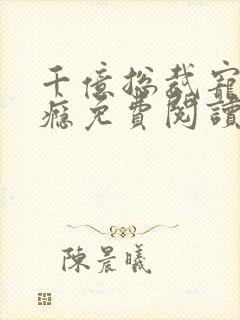 千億總裁寵
癮免費閱讀
陳晨曦